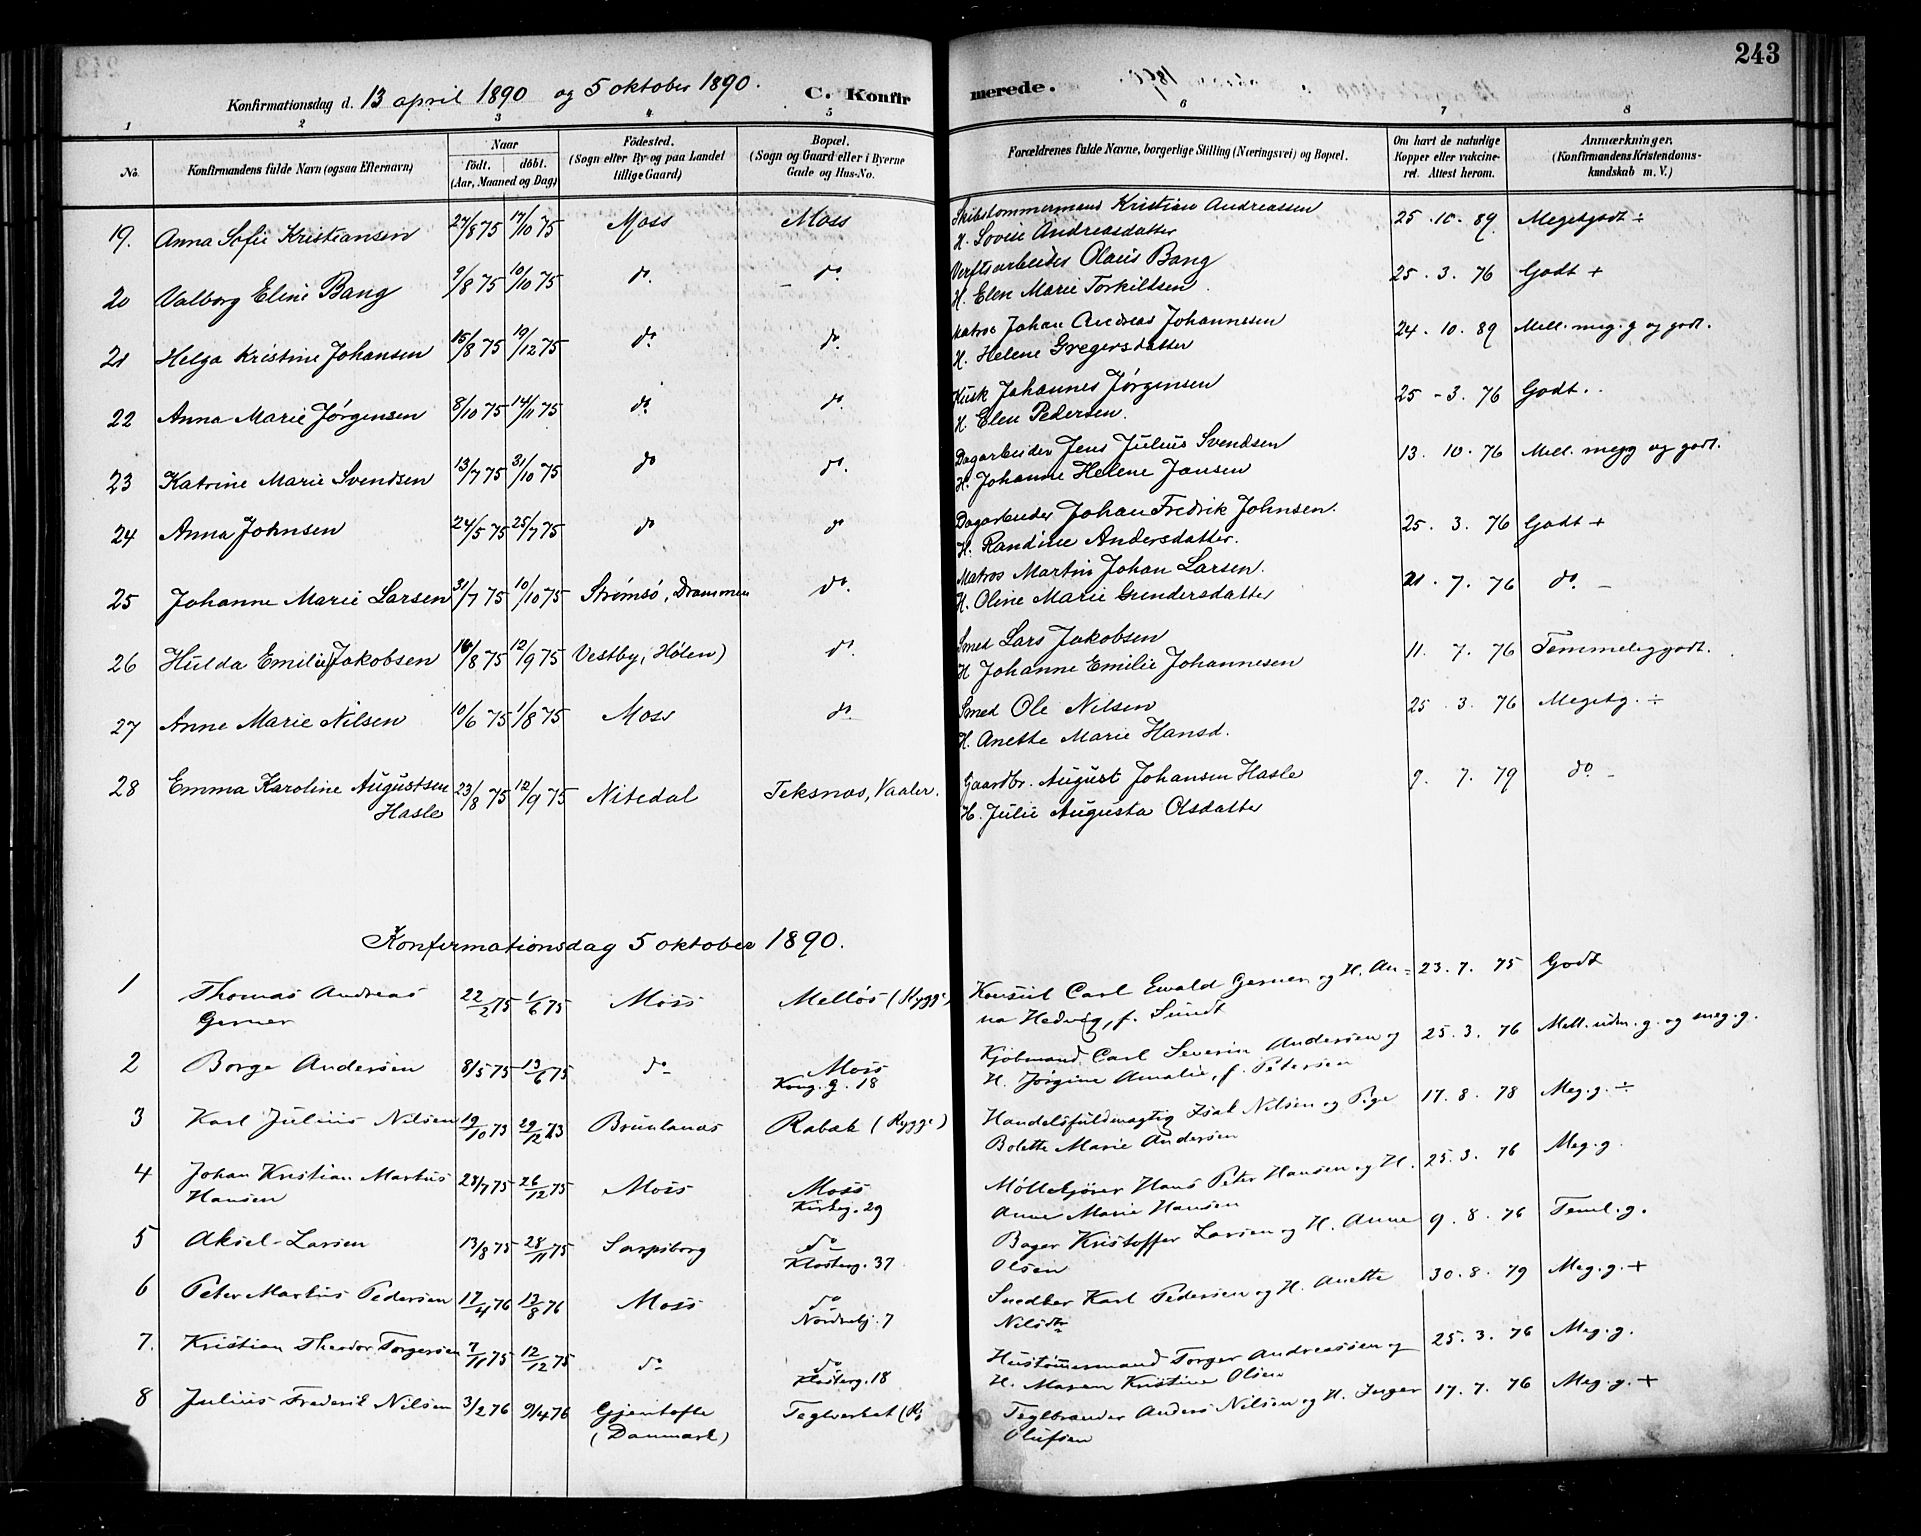 243
Konfirmationsdag d. 13 april 1890 og 5 oktober 1890.
C. Konfirmerede.
1 2 3 4 5 6 7 8
No. Konfirmandens fulde Navn (ogsaa Efternavn) Naar födt. döbt. (Aar, Maaned og Dag) Födested. (Sogn eller By og paa Landet tillige Gaard) Bopæl. (Sogn og Gaard eller i Byerne Gade og Hus-No. Forældrenes fulde Navne, borgerlige Stilling (Næringsvei) og Bopæl. Om havt de naturlige Kopper eller vakcineret. Attest herom. Anmærkninger. (Konfirmandens Kristendomskundskab m. V.)
19. Anna Sofie Kristiansen 27/8 75 17/10 75 Moss Moss Skibstømmermand Kristian Andreassen 25. 10. 89 Megetgodt ÷
H. Lovise Andreasdatter
20 Valborg Eline Bang 9/8 75 10/10 75 do. do. Verftsarbeider Olaus Bang 25. 3. 76 Godt +
H. Elen Marie Torkildsen.
21 Helga Kristine Johansen 15/8 75 19/12 75 do. do. Matros Johan Andreas Johannesen 24. 10. 89 Mell. meg. g og godt.
H. Helene Gregersdatter
22 Anna Marie Jørgensen 8/10 75 14/11 75 do. do. Kusk Johannes Jørgensen 25 - 3. 76 Godt.
H. Elen Pedersen.
23 Katrine Marie Svendsen 13/7 75 31/10 75 do do. Dagarbeider Jens Julius Svendsen 13. 10. 76 Mell. megg og godt.
H. Johanne Helene Jansen
24 Anna Johnsen 24/5 75 25/7 75 do do Dagarbeider Johan Fredrik Johnsen. 25. 3. 76 Godt +
H. Randine Andersdatter.
25 Johanne Marie Larsen 31/7 75 10/10 75 Strømsø, Drammen do. Matros Martin Johan Larsen. 21. 7. 76 do. -
H. Oline Marie Gundersdatter
26 Hulda Emilie Jakobsen 16/8 75 12/9 75 Vestby, (Hølen) do. Smed Lars Jakobsen 11. 7. 76 Temmeliggodt.
H Johanne Emilie Johannesen
27 Anne Marie Nilsen 10/6 75 1/8 75 Moss do. Smed Ole Nilsen 25. 3. 76 Megetg. ÷
H. Anette Marie Hansd.
28 Emma Karoline Augustsen 23/8 75 12/9 75 Nitedal Teksnæs, Vaaler. Gaardbr. August Johansen Hasle 9. 7. 79 do -
Hasle H. Julie Augusta Olsdatter
Konfirmationsdag 5 oktober 1890.
1 Thomas Andreas 22/2 75 1/6 75 Moss Melløs (Rygge) Konsul Carl Ewald Gerner og H. An- 23. 7. 75 Godt
Gerner na Hedvig, f. Sundt
2 Borge Andersen 8/5 75 13/6 75 do Moss Kjøbmand Carl Severin Andersen og 25. 3. 76 Mell. udm. g. og meg. g.
Kong. g. 18 H. Jørgine Amalie, f. Petersen
3 Karl Julius Nilsen 19/10 73 29/12 73 Brunlanæs Rabæk (Rygge) Handelsfuldmægtig Isak Nilsen og Pige 17. 8. 78 Meg. g. ÷
Bolette Marie Andersen
4 Johan Kristian Martius 28/7 75 26/12 75 Moss Moss Møllekjører Hans Peter Hansen og H. 25. 3. 76 Meg. g.
Hansen Kirkeg. 29 Anne Marie Hansen
5 Aksel Larsen 13/8 75 28/11 75 Sarpsborg do Bager Kristoffer Larsen og H. Anne 9. 8. 76 Teml. g.
Klosterg. 37 Olsen
6 Peter Martius Pedersen 17/4 76 13/8 76 Moss do Snedker Karl Pedersen og H. Anette 30. 8. 79 Meg. g. +
7 Nilsdtr
7. Kristian Theodor Torgersen 7/11 75 12/12 75 do do Hustømmermand Torger Andreassen og 25. 3. 76 Meg. g.
Klosterg. 18 H. Maren Kristine Olsen
8 Julius Frederik Nilsen 3/2 76 9/4 76 Gjentofte Teglverket (Ry Teglbrænder Anders Nilsen og H. Inger 17. 7. 76 Meg. g. +
(Danmark) Olufsen